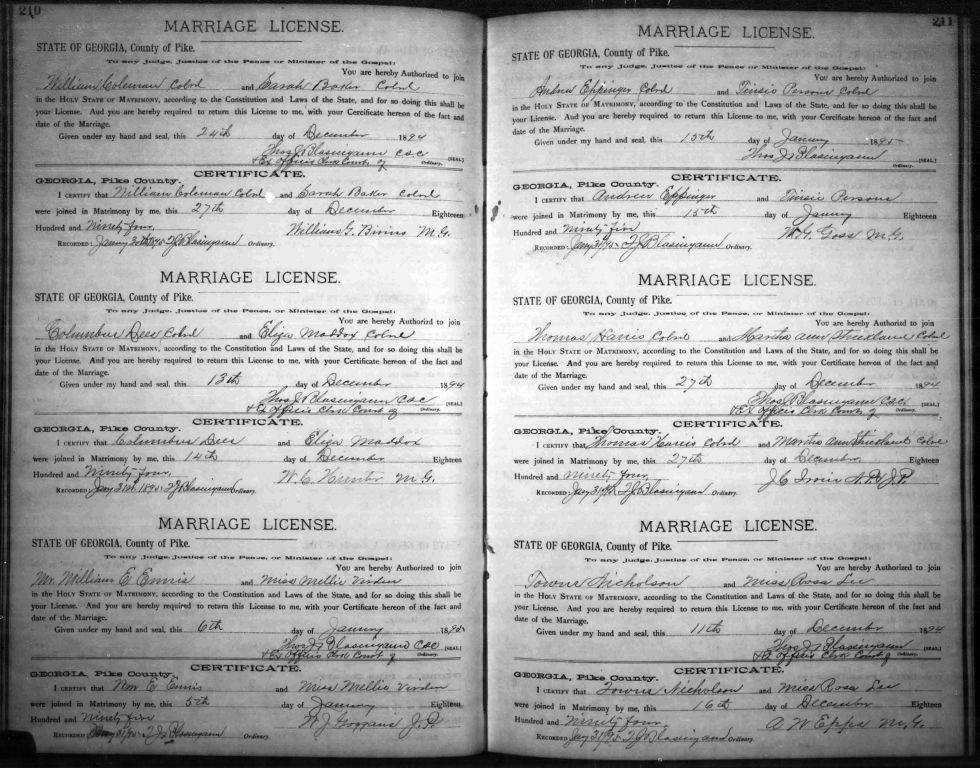 210
MARRIAGE LICENSE.
STATE OF GEORGIA, County of Pike.
To any Judge, Justice of the Peace or Minister of the Gospel:
You are hereby Authorized to join
William Coleman Cold and Sarah Baker Cold
in the HOLY STATE OF MATRIMONY, according to the Constitution and Laws of the State, and for so doing this shall be
your License. And you are hereby required to return this License to me, with your Certificate hereon of the fact and
date of the Marriage.
Given under my hand and seal, this 24th day of December 1894
Thos J Blasingame C.S.C. [SEAL]
& Ex Officio Clrk Court of Ordinary.
CERTIFICATE.
GEORGIA, Pike County.
I CERTIFY that William Coleman Cold and Sarah Baker Cold
were joined in Matrimony by me, this 27th day of December Eighteen
Hundred and Ninety four. William G. Bivins M.G.
RECORDED: January 30th 1895 T J Blasingame Ordinary.
MARRIAGE LICENSE.
STATE OF GEORGIA, County of Pike.
To any Judge, Justice of the Peace or Minister of the Gospel:
You are hereby Authorized to join
Columbus Dees Cold and Eliza Maddox Cold
in the HOLY STATE OF MATRIMONY, according to the Constitution and Laws of the State, and for so doing this shall be
your License. And you are hereby required to return this License to me, with your Certificate hereon of the fact and
date of the Marriage.
Given under my hand and seal, this 13th day of December 1894
Thos J Blasingame C.S.C. [SEAL]
& Ex Officio Clrk Court of Ordinary.
CERTIFICATE.
GEORGIA, Pike County.
I CERTIFY that Columbus Dees and Eliza Maddox
were joined in Matrimony by me, this 14th day of December Eighteen
Hundred and Ninety four. W. C. Hunter M.G.
RECORDED Jany 31st 1895 T J Blasingame Ordinary.
MARRIAGE LICENSE.
STATE OF GEORGIA, County of Pike.
To any Judge, Justice of the Peace, or Minister of the Gospel:
You are hereby Authorized to join
Mr. William E Ennis and Miss Mellie Virden
in the HOLY STATE OF MATRIMONY, according to the Constitution and Laws of the State, and for so doing this shall be
your License. And you are hereby required to return this License to me, with your Certificate hereon of the fact and
date of the Marriage.
Given under my hand and seal, this 6th day of January 1895
Thos J Blasingame C.S.C. [SEAL]
& Ex Officio Clrk Court of Ordinary.
CERTIFICATE.
GEORGIA, Pike County.
I CERTIFY that Wm E Ennis and Miss Mellie Virden
were joined in Matrimony by me, this 5th day of January Eighteen
Hundred and Ninety five W J J.P.
RECORDED Jany 31/95 T J Blasingame Ordinary.
211
MARRIAGE LICENSE.
STATE OF GEORGIA, County of Pike.
To any Judge, Justice of the Peace or Minister of the Gospel:
You are hereby Authorized to join
Andrew Eppinger Cold and Tinsie Persons Cold
in the HOLY STATE OF MATRIMONY, according to the Constitution and Laws of the State, and for so doing this shall be
your License. And you are hereby required to return this License to me, with your Certificate hereon of the fact and
date of the Marriage.
Given under my hand and seal, this 15th day of January 1895
Thos J Blasingame [SEAL]
Ordinary.
CERTIFICATE.
GEORGIA, Pike County.
I CERTIFY that Andrew Eppinger and Tinsie Persons
were joined in Matrimony by me, this 15th day of January Eighteen
Hundred and Ninety five W. G. Goss M.G.
RECORDED: Jany 31/95 T J Blasingame Ordinary.
MARRIAGE LICENSE.
STATE OF GEORGIA, County of Pike.
To any Judge, Justice of the Peace or Minister of the Gospel:
You are hereby Authorized to join
Thomas Harris Cold and Martha Ann Strickland Cold
in the HOLY STATE OF MATRIMONY, according to the Constitution and Laws of the State, and for so doing this shall be
your License. And you are hereby required to return this License to me, with your Certificate hereon of the fact and
date of the Marriage.
Given under my hand and seal, this 27th day of December 1894
Thos J Blasingame C.S.C. [SEAL]
& Ex Officio Clrk Court of Ordinary.
CERTIFICATE.
GEORGIA, Pike County.
I CERTIFY that Thomas Harris Cold and Martha Ann Strickland Cold
were joined in Matrimony by me, this 27th day of December Eighteen
Hundred and Ninety four J C Irvin N.P. & J.P.
RECORDED Jany 31/95 T J Blasingame Ordinary.
MARRIAGE LICENSE.
STATE OF GEORGIA, County of Pike.
To any Judge, Justice of the Peace, or Minister of the Gospel:
You are hereby Authorized to join
Towns Nicholson and Miss Rosa Lee
in the HOLY STATE OF MATRIMONY, according to the Constitution and Laws of the State, and for so doing this shall be
your License. And you are hereby required to return this License to me, with your Certificate hereon of the fact and
date of the Marriage.
Given under my hand and seal, this 11th day of December 1894
Thos J Blasingame [SEAL]
& Ex Officio Clrk Court of Ordinary.
CERTIFICATE.
GEORGIA, Pike County.
I CERTIFY that Towns Nicholson and Miss Rosa Lee
were joined in Matrimony by me, this 16th day of December Eighteen
Hundred and Ninety four A W Epps M.G.
RECORDED Jany 31/95 T J Blasingame Ordinary.